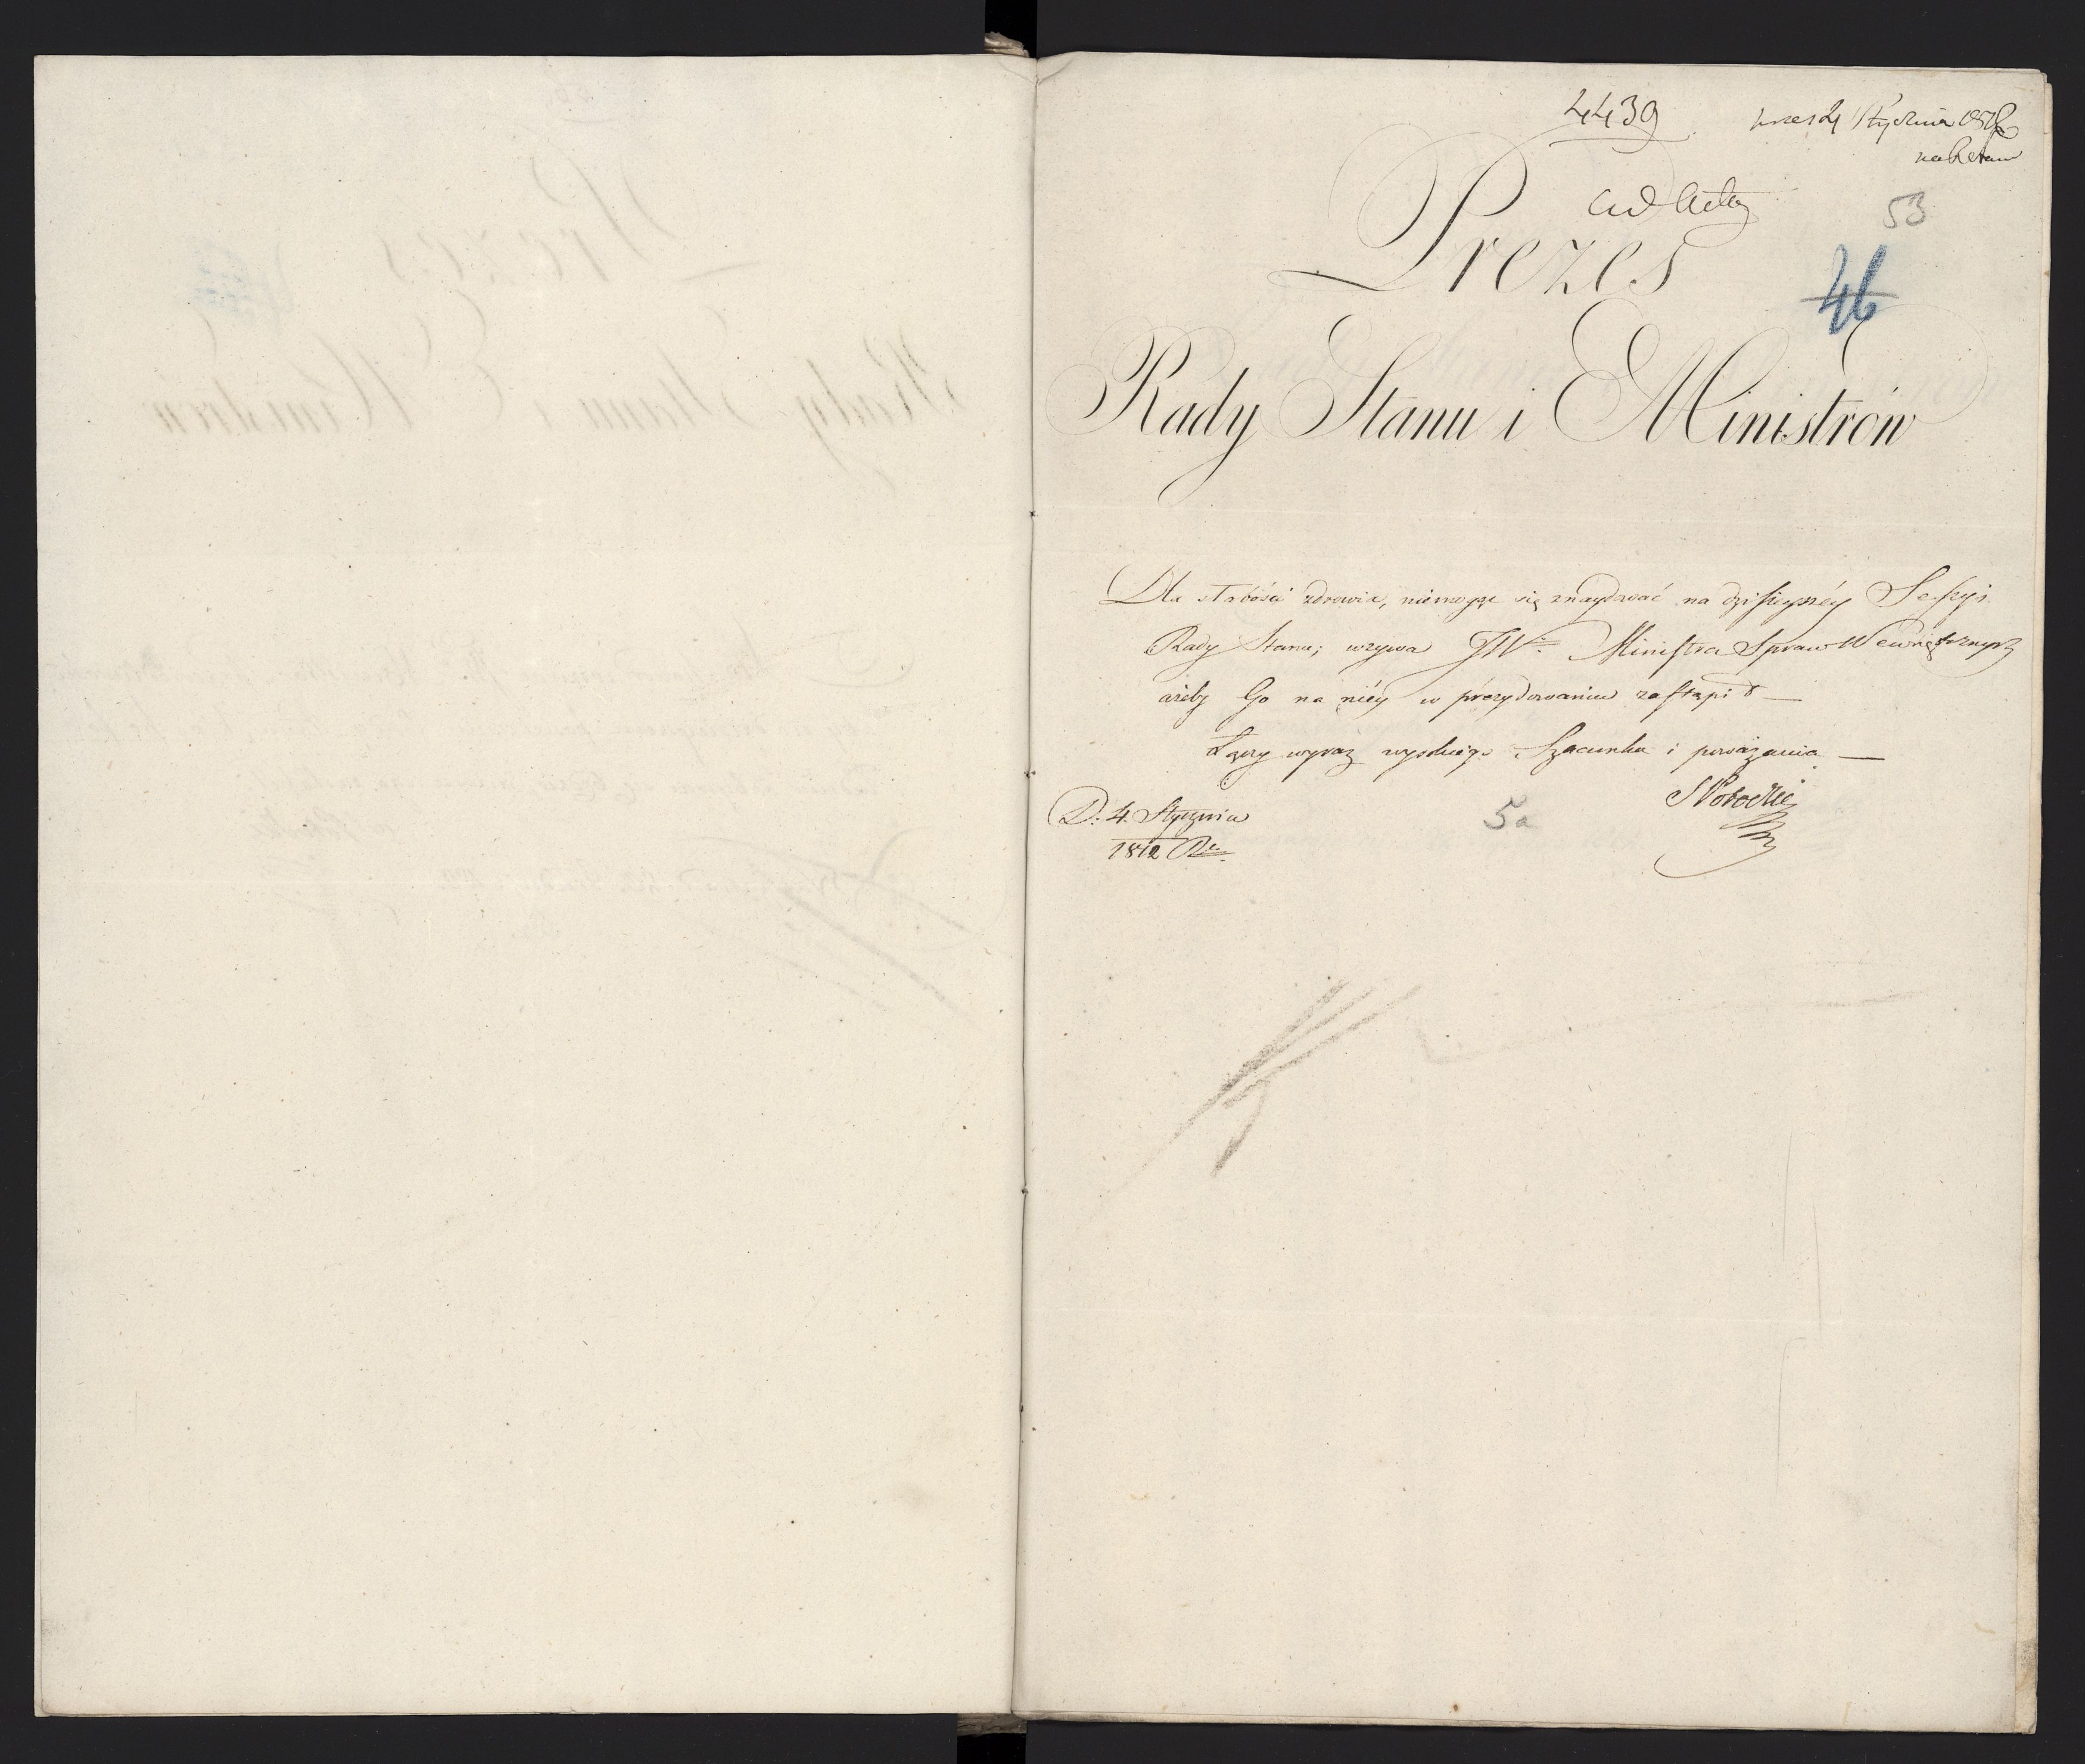 4439
prez 4 Stycznia 1812
ad Acta
53
Prezes
46
Rady Stanu i Ministrów
Dla słabości zdrowia, niemogąc się znaydować na dzisieyszéy Sessyi
Rady Stanu; wzywa JW. Ministra Spraw Wewnętrznych
ażeby Go na niéy w prezydowaniu zastąpił —
Łączy wyraz wysokiego Szacunku i poważania —
S Potocki
D: 4. Stycznia
5a
1812 Ru